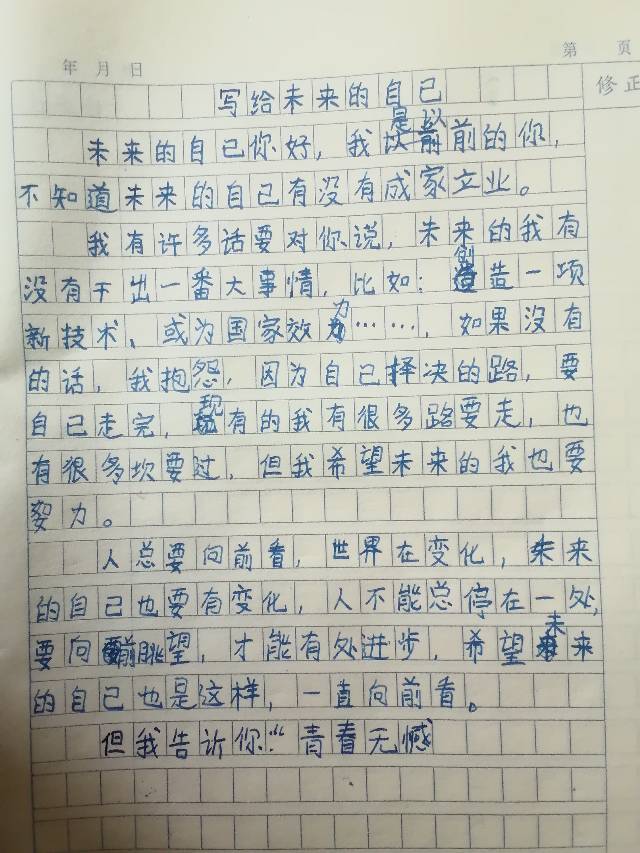 年 月 日
第 页
修正
写给未来的自己
未来的自己你好，我是以前的你，
不知道未来的自己有没有成家立业。
我有许多话要对你说，未来的我有
没有干出一番大事情，比如：创造一项
新技术、或为国家效力……，如果没有
的话，我抱怨，因为自己择决的路，要
自己走完，现有的我有很多路要走，也
有很多坎要过，但我希望未来的我也要
努力。
人总要向前看，世界在变化，未来
的自己也要有变化，人不能总停在一处，
要向前眺望，才能有处进步，希望未来
的自己也是这样，一直向前看。
但我告诉你：“青春无憾